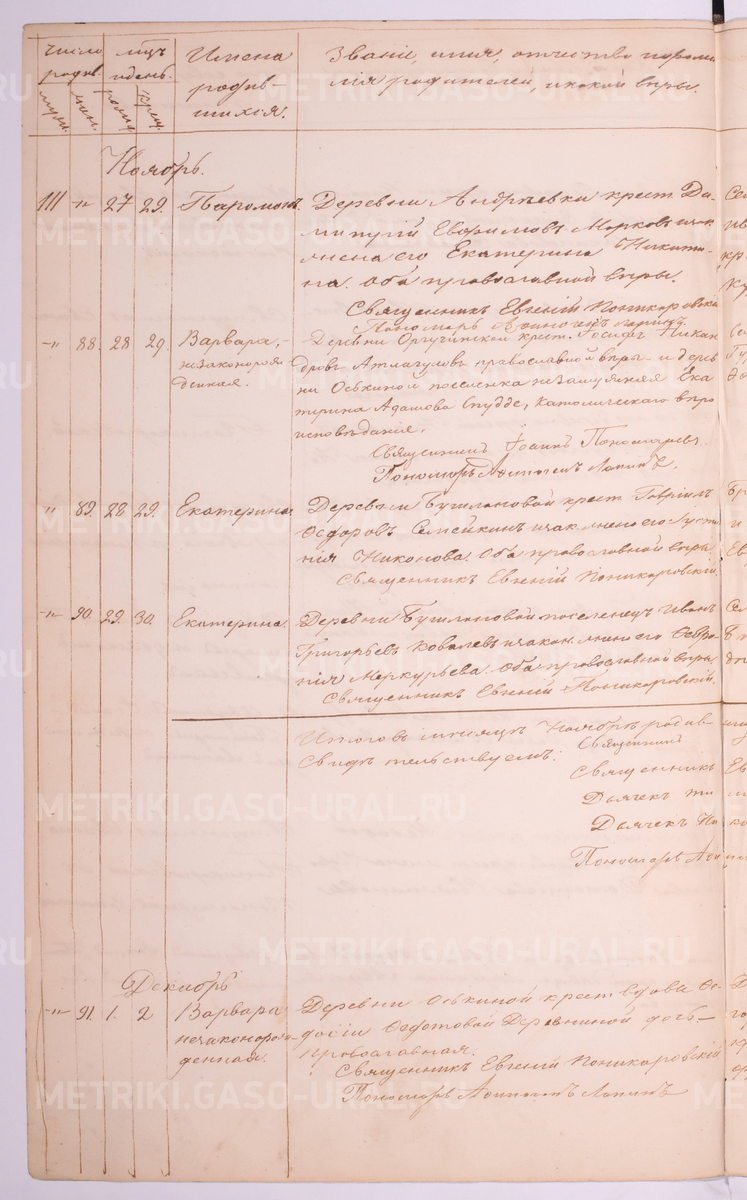 Число родив. | мѣц. и день. | Имена родив-шихся. | Званіе, имя, отчество и фами
лія родителей, и какой вѣры.
муж. | жен. | рожд. | крещ.
Ноябрь.
111 " 27 29. Парамонъ. Деревни Андрѣевки крест. Ди-
митрій Евфимовъ Марковъ и зак.
жена его Екатерина Никити-
на. оба православной вѣры.
Священникъ Евгеній Поникаровскій
Пономарь
-"- 88. 28 29. Варвара,- Деревни крест. Іосифъ Никан
незаконорож дровъ православной вѣры и дерев
денная. ни Оськиной поселенка незамужняя Ека
терина Адамова Католическаго вѣро
исповѣданія.
Священникъ Іоаннъ Пономаревъ.
Пономарь
" 89. 28 29. Екатерина Деревни крест. Гавріилъ
Ѳедоровъ Семейкинъ и зак. жена его Густи
нія Никонова. Оба православной вѣры
Священникъ Евгеній Поникаровскій.
-"- 90. 29. 30. Екатерина. Деревни поселенецъ Иванъ
Григорьевъ Ковалевъ и закон. жена его Февро
нія Меркурьева. Оба православной вѣры
Священникъ Евгеній Поникаровскій.
Итого въ мѣсяцѣ Ноябрѣ родив-
Свидѣтельствуемъ: Священникъ
Священникъ
Дьячекъ
Дьячекъ
Пономарь
Декабрь
-"- 91. 1. 2 Варвара Деревни Оськиной крест. вдова Ѳе-
незаконорож- досіи Ѳедотовой дочь-
денная. Православная.
Священникъ Евгеній Поникаровскій
Пономарь
METRIKI.GASO-URAL.RU